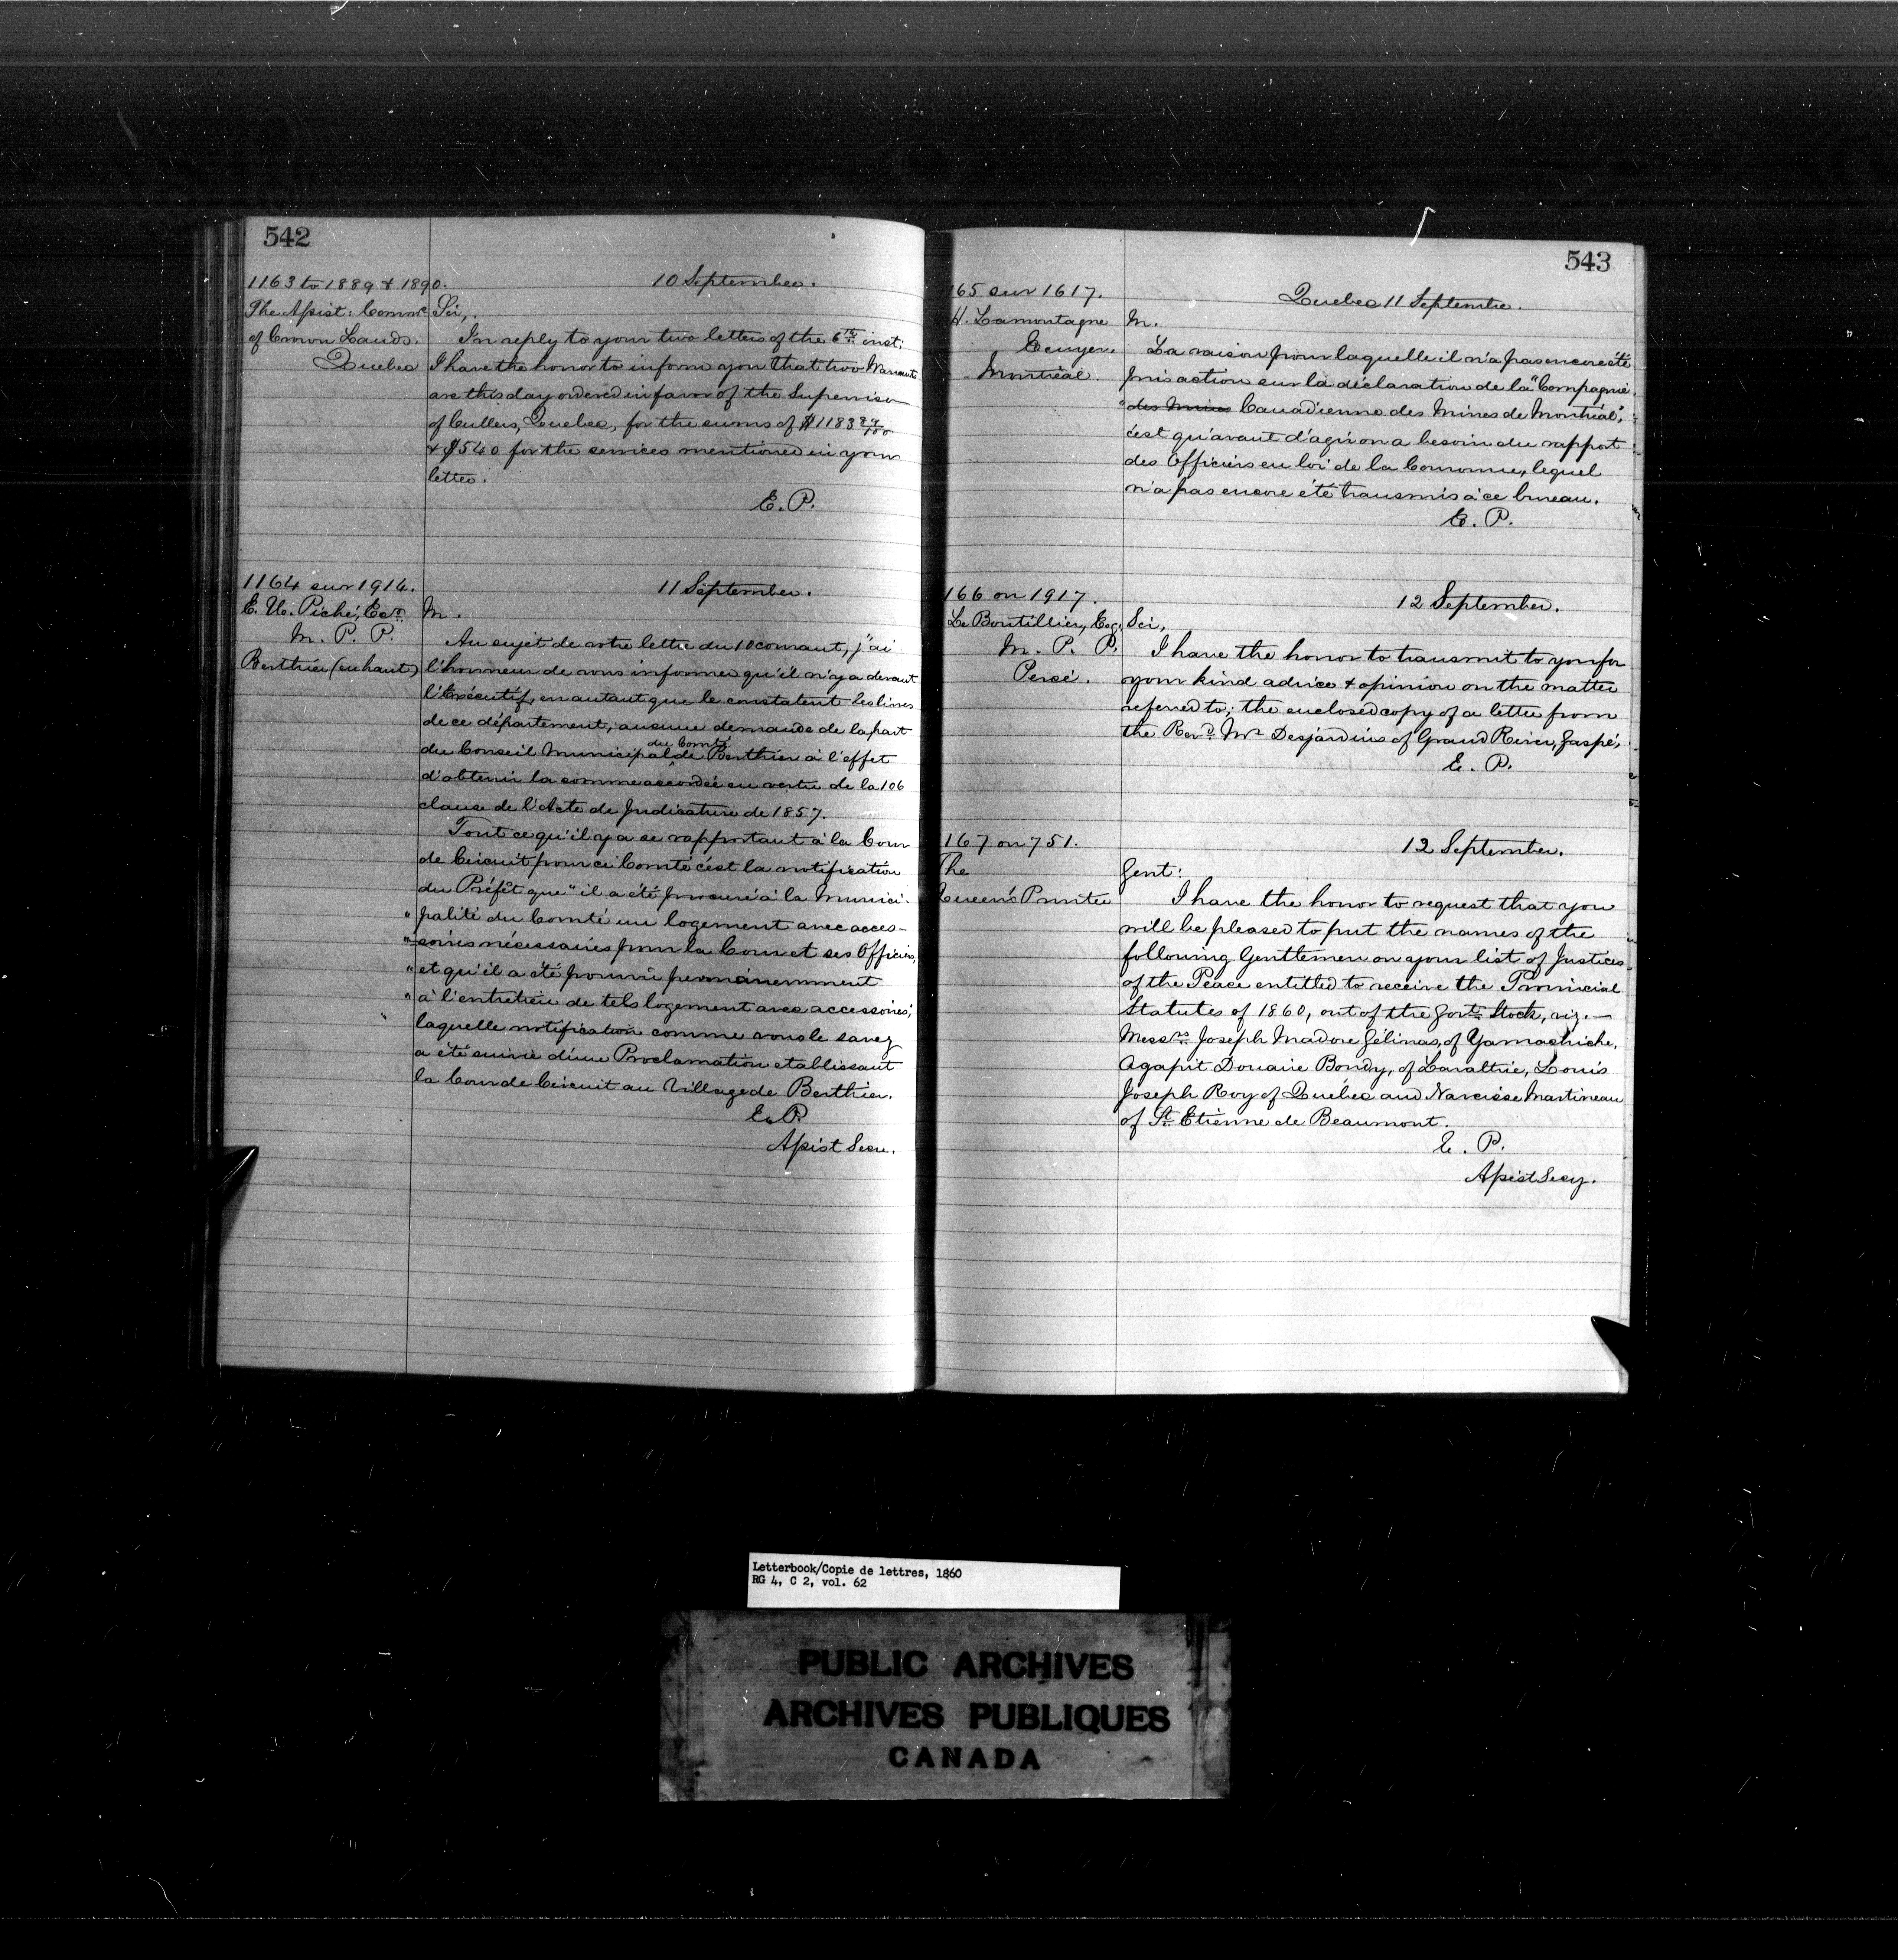 542
1163 to 1889 & 1890.
10 September.
The Assist: Commr
of Crown Lands.
Quebec
Sir,
In reply to your two letters of the 6th inst:
I have the honor to inform you that two Warrants
are this day ordered in favor of the Supervisor
of Cullers, Quebec, for the sums of $1183 89/100
& $540 for the services mentioned in your
letter.
E. P.
1164 sur 1914.
11 September.
E. U. Piché, Ecr.
M. P. P.
Berthier (en haut)
M.
Au sujet de votre lettre du 10 courant, j'ai
l'honneur de vous informer qu'il n'y a devant
l'Exécutif, en autant que le constatent les livres
de ce département, aucune demande de la part
du Conseil Municipal du Comté de Berthier à l'effet
d'obtenir la somme accordée en vertu de la 106
clause de l'Acte de Judicature de 1857.
Tout ce qu'il y a se rapportant à la Cour
de Circuit pour ce Comté c'est la notification
du Préfêt que "il a été procuré à la Munici-
"palité du Comté un logement avec acces-
"soires nécessaires pour la Cour et ses Officiers,
"et qu'il a été pourvu permanemment
"à l'entretien de tels logement avec accessoires;
laquelle notification comme vous le savez
a été suivie d'une Proclamation etablissant
la Cour de Circuit au Village de Berthier.
E. P.
Assist Secre.
543
165 sur 1617.
Quebec 11 Septembre.
H. Lamontagne
Ecuyer.
Montréal.
M.
La raison pour laquelle il n'a pas encore été
pris action sur la déclaration de la "Compagnie
"des Mines Canadienne des Mines de Montréal",
c'est qu'avant d'agir on a besoin du rapport
des Officiers en loi de la Couronne, lequel
n'a pas encore été transmis à ce bureau.
E. P.
166 on 1917.
12 September.
Le Boutillier, Esqr.
M. P. P.
Percé.
Sir,
I have the honor to transmit to you for
your kind advice & opinion on the matter
referred to; the enclosed copy of a letter from
the Revd. Mr Desjardins of Grand River, Gaspé,
E. P.
167 on 751.
12 September.
The
Queen's Printer
Gent:
I have the honor to request that you
will be pleased to put the names of the
following Gentlemen on your list of Justices
of the Peace entitled to receive the Provincial
Statutes of 1860, out of the Govt. Stock, viz.—
Messrs. Joseph Madore Gélinas, of Yamachiche,
Agapit Douaire Bondy, of Lavaltrie, Louis
Joseph Roy of Québec and Narcisse Martineau
of St. Etienne de Beaumont.
E. P.
Assist Secy.
Letterbook/Copie de lettres, 1860
RG 4, C 2, vol. 62
PUBLIC ARCHIVES
ARCHIVES PUBLIQUES
CANADA